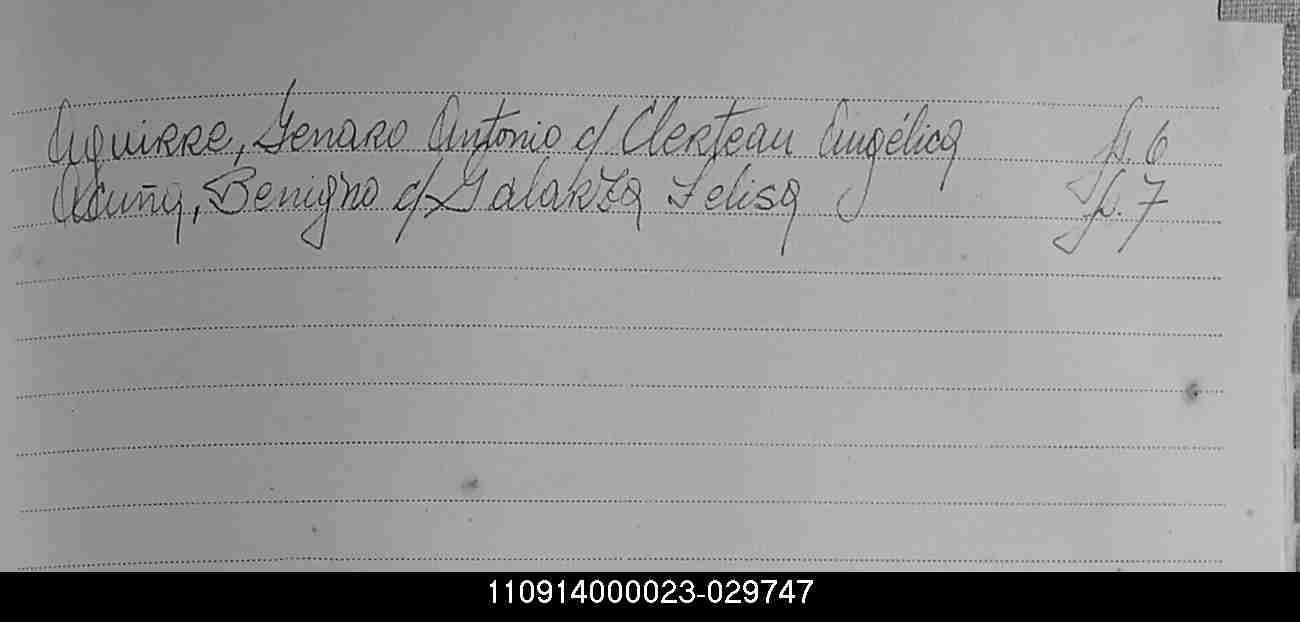 Aguirre, Genaro Antonio c/ Clerteau Angélica fs. 6
Acuña, Benigno c/ Galarza Felisa fs. 7
110914000023-029747